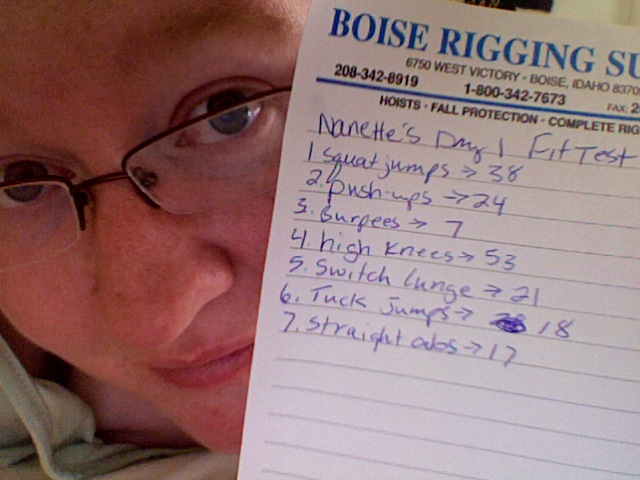 BOISE RIGGING SU
6750 WEST VICTORY · BOISE, IDAHO 8370
208-342-8919 1-800-342-7673 FAX: 2
HOISTS · FALL PROTECTION · COMPLETE RIG
Nanette's Day 1 Fit Test
1 squat jumps → 38
2. push-ups → 24
3. Burpees → 7
4. high knees → 53
5. Switch lunge → 21
6. Tuck jumps → 18
7. straight abs → 17